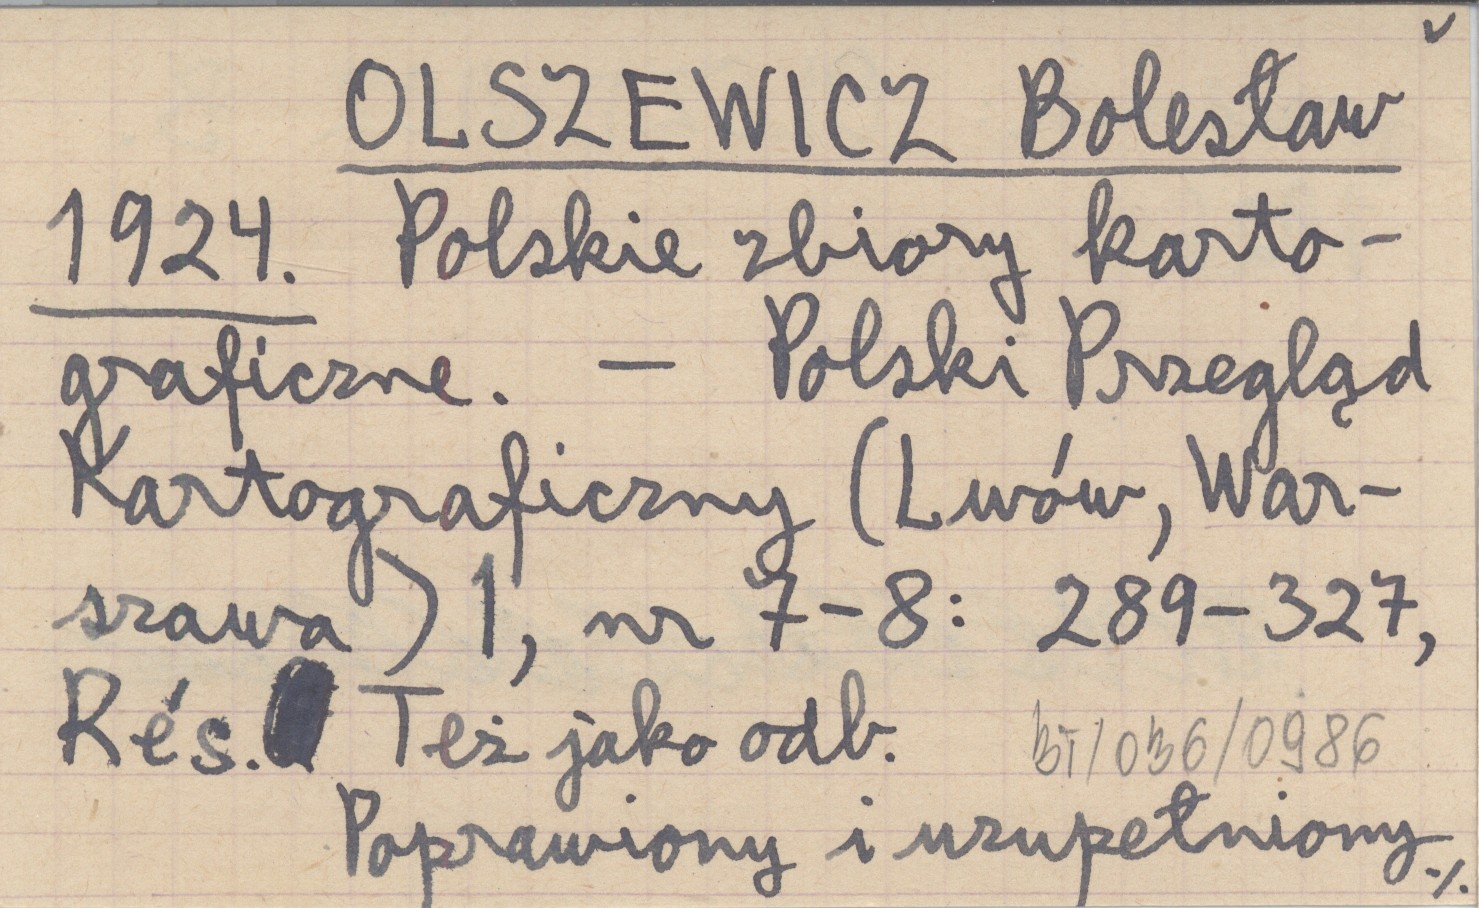 OLSZEWICZ Bolesław
1924. Polskie zbiory karto-
graficzne. — Polski Przegląd
Kartograficzny (Lwów, War-
szawa) 1, nr 7-8: 289-327,
Rés. Też jako odb. BT/036/0986
Poprawiony i uzupełniony ./.